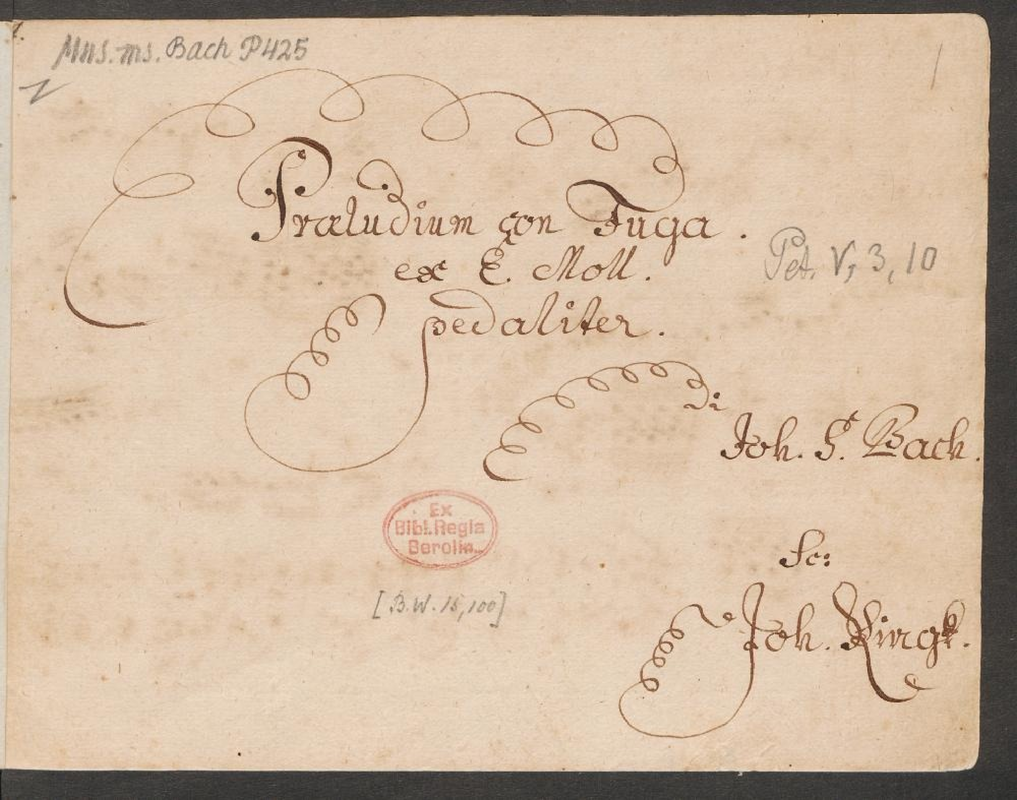 Mus. ms. Bach P425
1
Præludium con Fuga.
ex E. Moll.
pedaliter.
Pet. V, 3, 10
di
Joh. S. Bach.
Ex
Bibl. Regia
Berolin.
[B.W. 15, 100]
Sc:
Joh. Ringk.